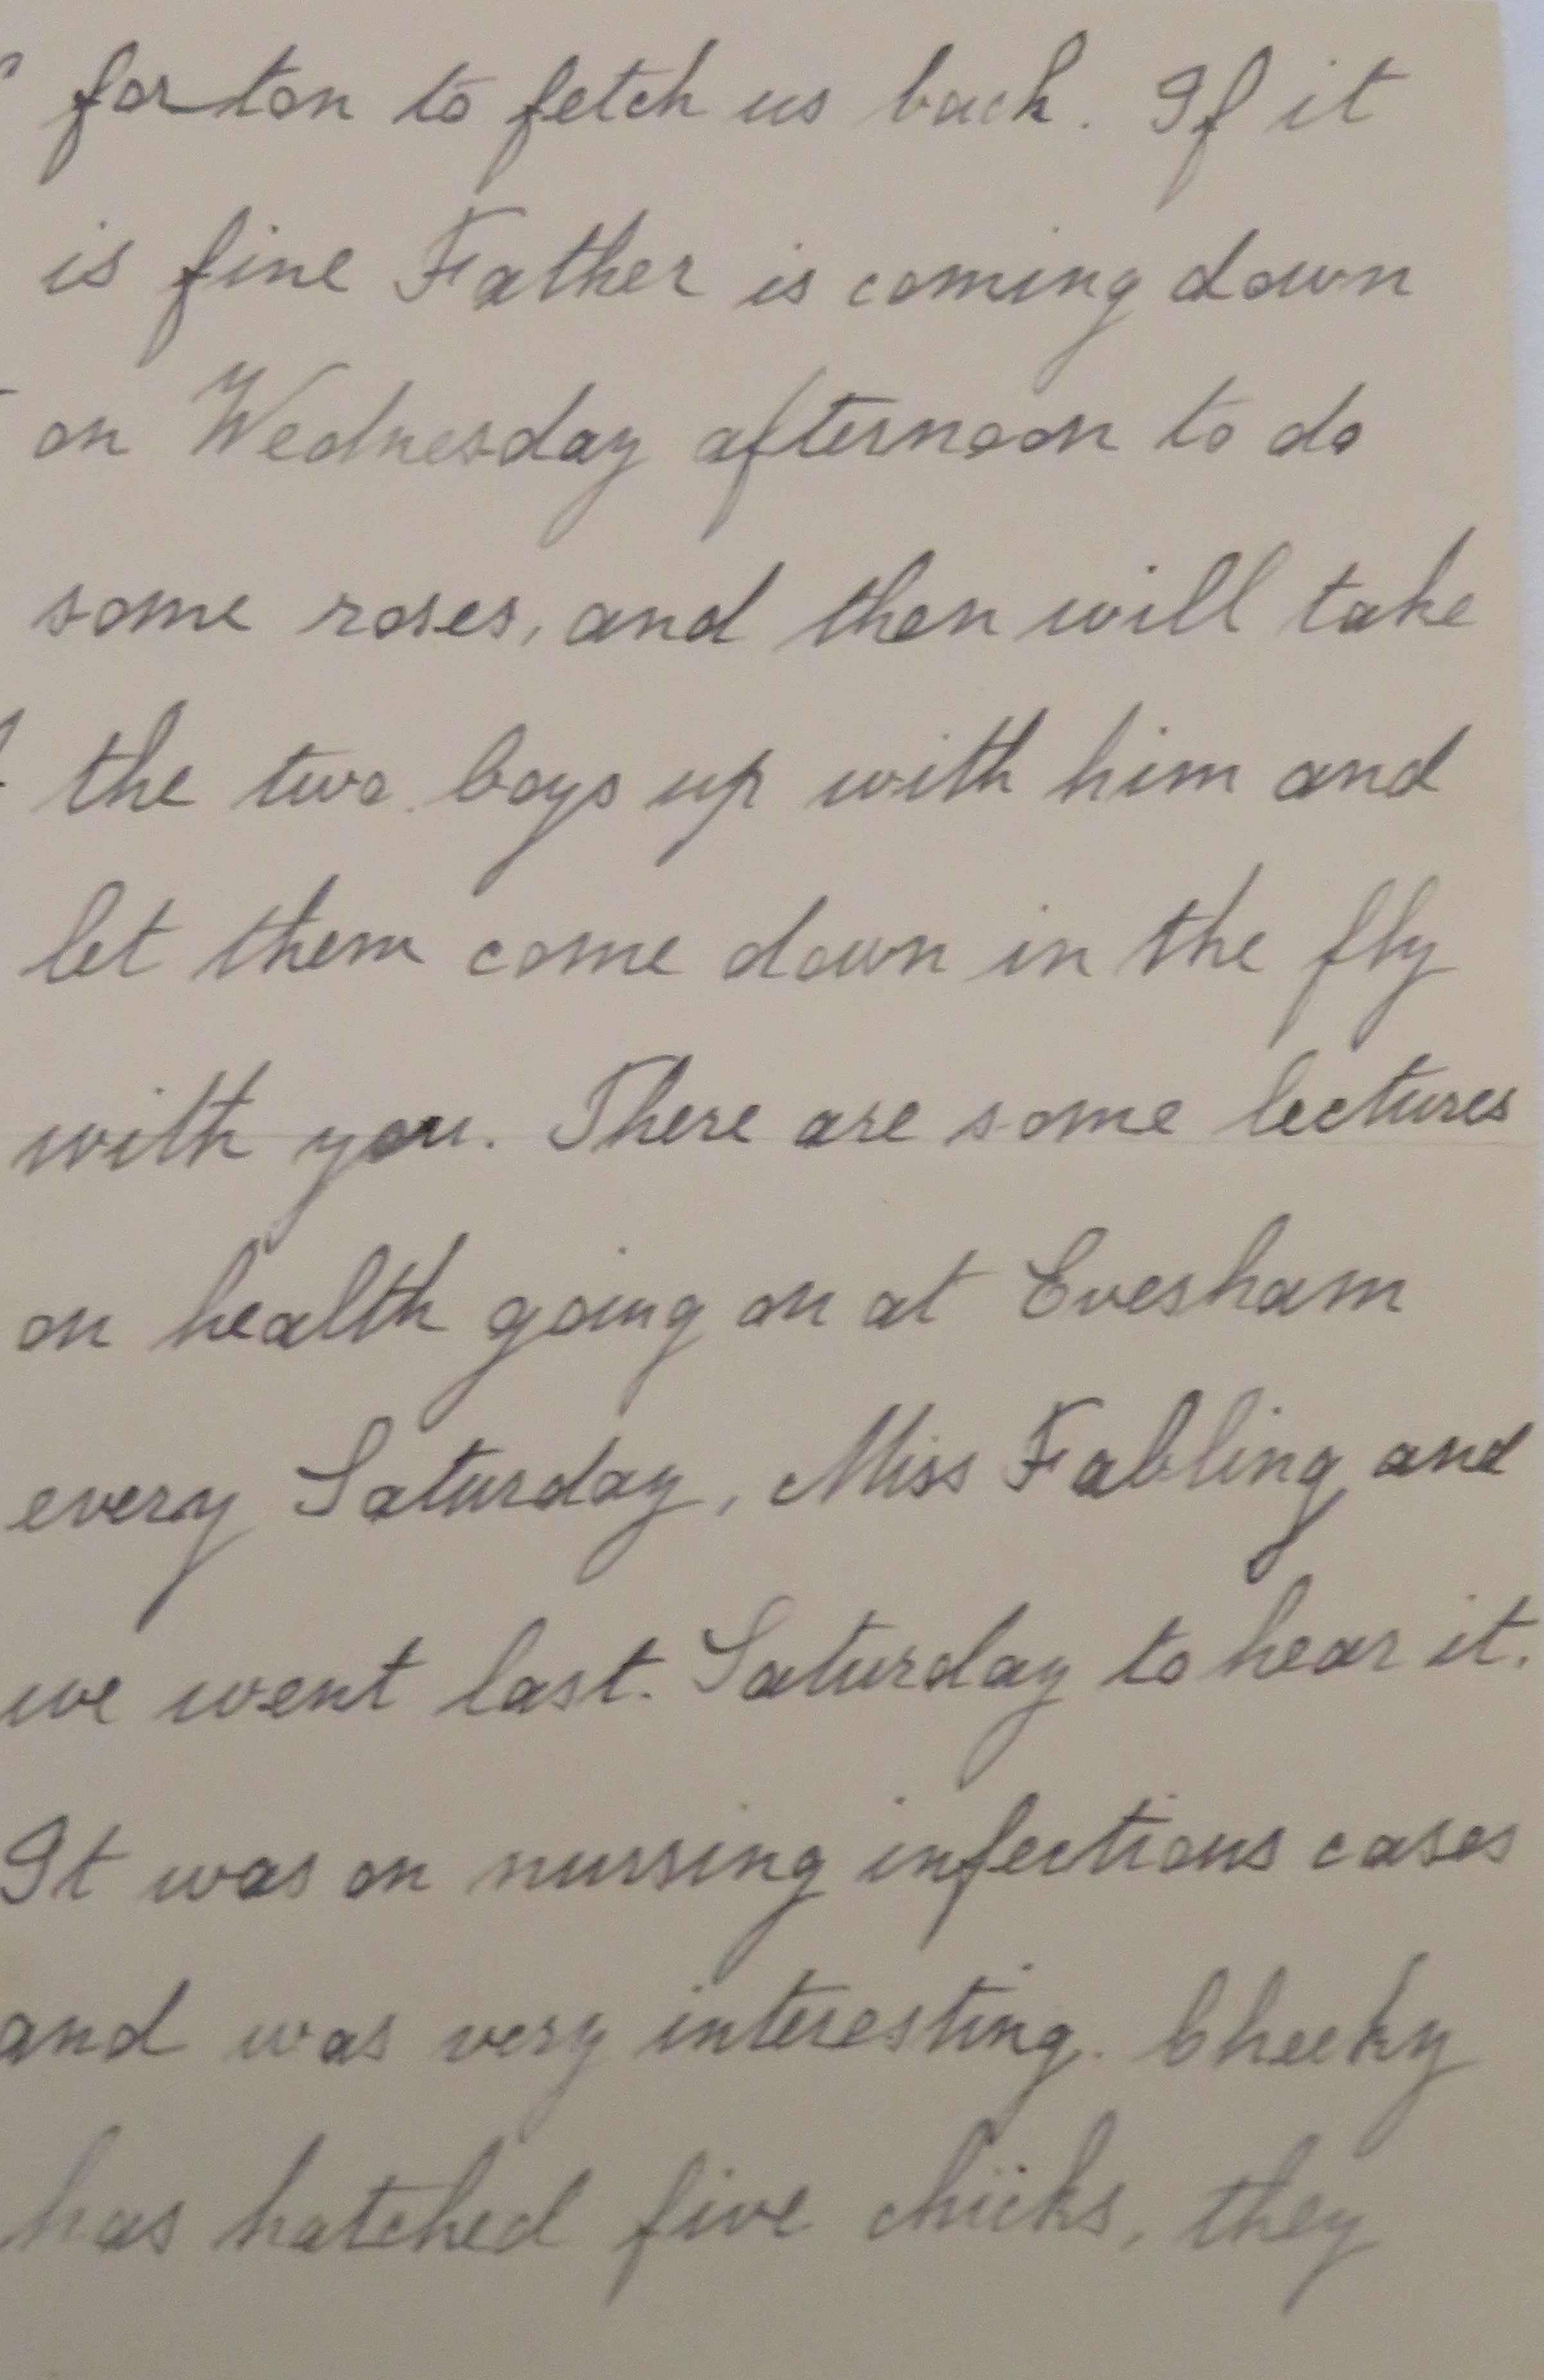 for ton to fetch us back. If it
is fine Father is coming down
on Wednesday afternoon to do
some roses, and then will take
the two boys up with him and
let them come down in the fly
with you. There are some lectures
on health going on at Evesham
every Saturday, Miss Fabling and
we went last. Saturday to hear it.
It was on nursing infectious cases
and was very interesting. Cheeky
has hatched five chicks, they